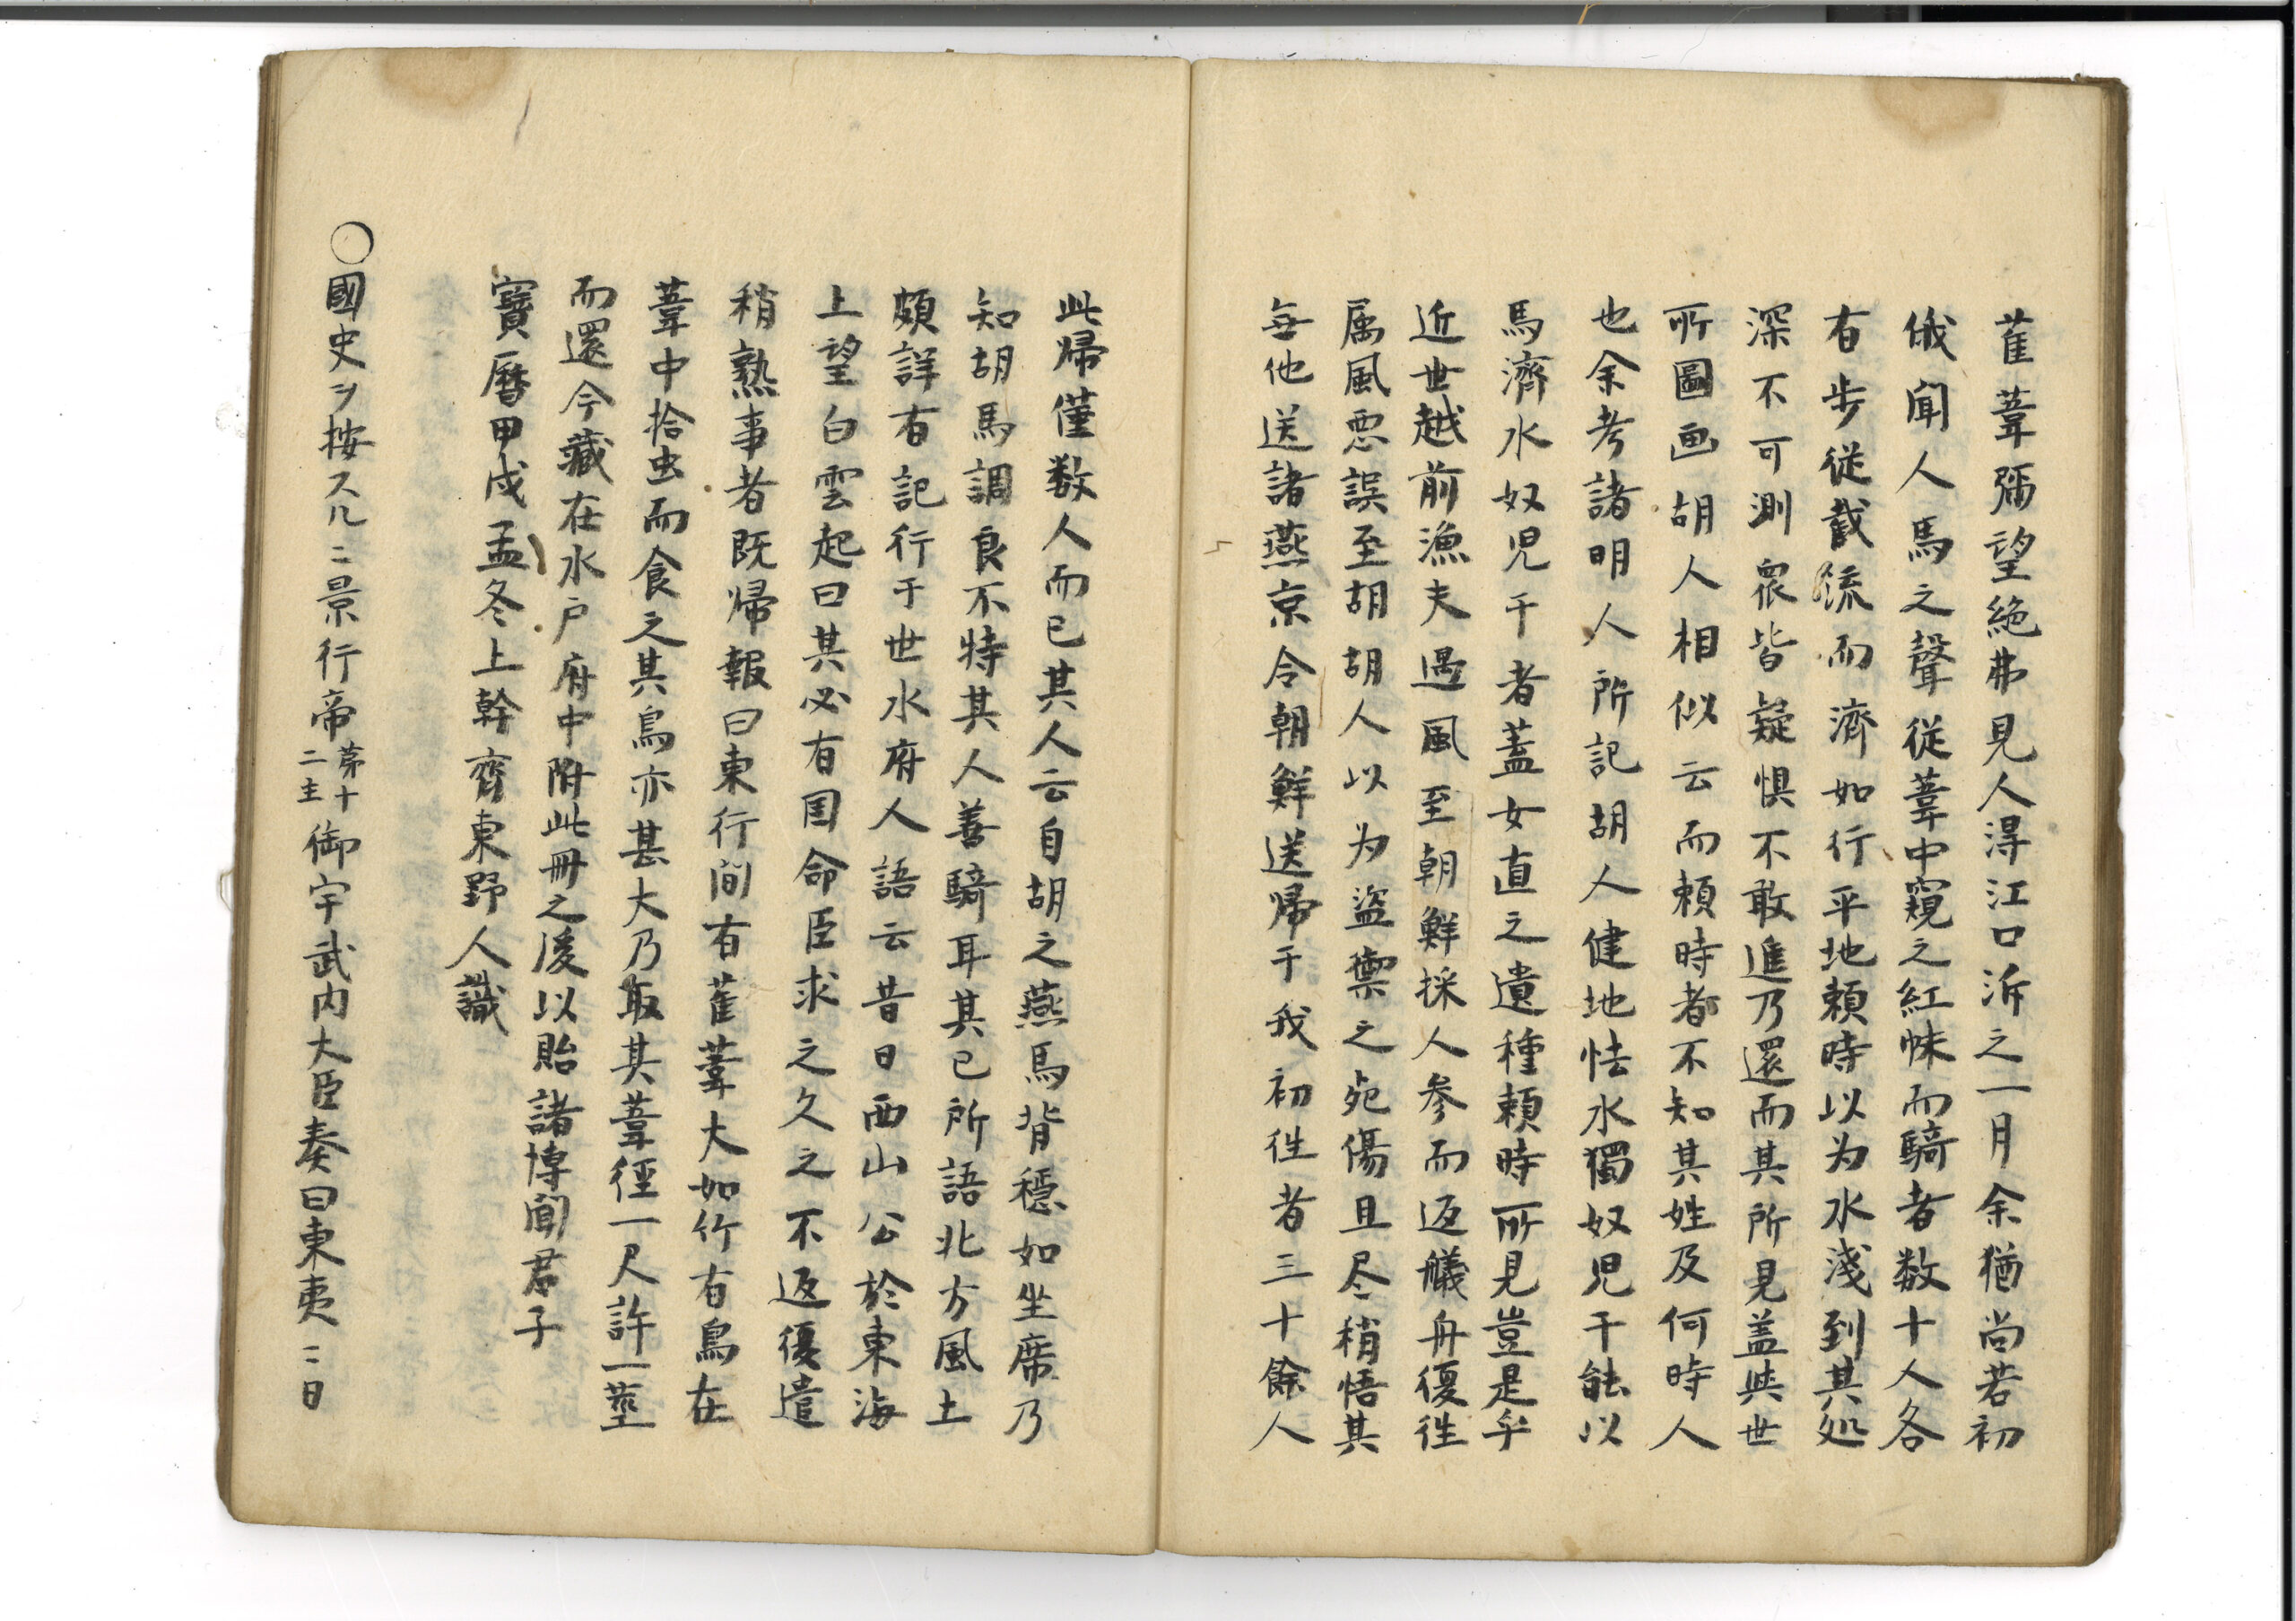 萑葦彌望絶弗見人得江口泝之一月余猶尚若初
俄聞人馬之聲従葦中窺之紅帓而騎者数十人各
有歩従截流而濟如行平地頼時以为水淺到其処
深不可測衆皆疑惧不敢進乃還而其所見盖與世
所圖画胡人相似云而頼時者不知其姓及何時人
也余考諸明人所記胡人健地怯水獨奴児干能以
馬濟水奴児干者蓋女直之遺種頼時所見豈是乎
近世越前漁夫遇風至朝鮮採人参而返艤舟復徃
属風悪誤至胡胡人以为盜禦之死傷且尽稍悟其
無他送諸燕京令朝鮮送帰于我初徃者三十餘人
此帰僅数人而已其人云自胡之燕馬背穏如坐席乃
知胡馬調良不特其人善騎耳其已所語北方風土
頗詳有記行于世水府人語云昔日西山公於東海
上望白雲起曰其必有国命臣求之久之不返復遣
稍熟事者既帰報曰東行間有萑葦大如竹有鳥在
葦中拾虫而食之其鳥亦甚大乃取其葦徑一尺許一莖
而還今藏在水戸府中附此冊之後以貽諸博聞君子
寳暦甲戌孟冬上幹齊東野人識
〇國史ヲ按スルニ景行帝第十二主御宇武内大臣奏曰東夷ニ日